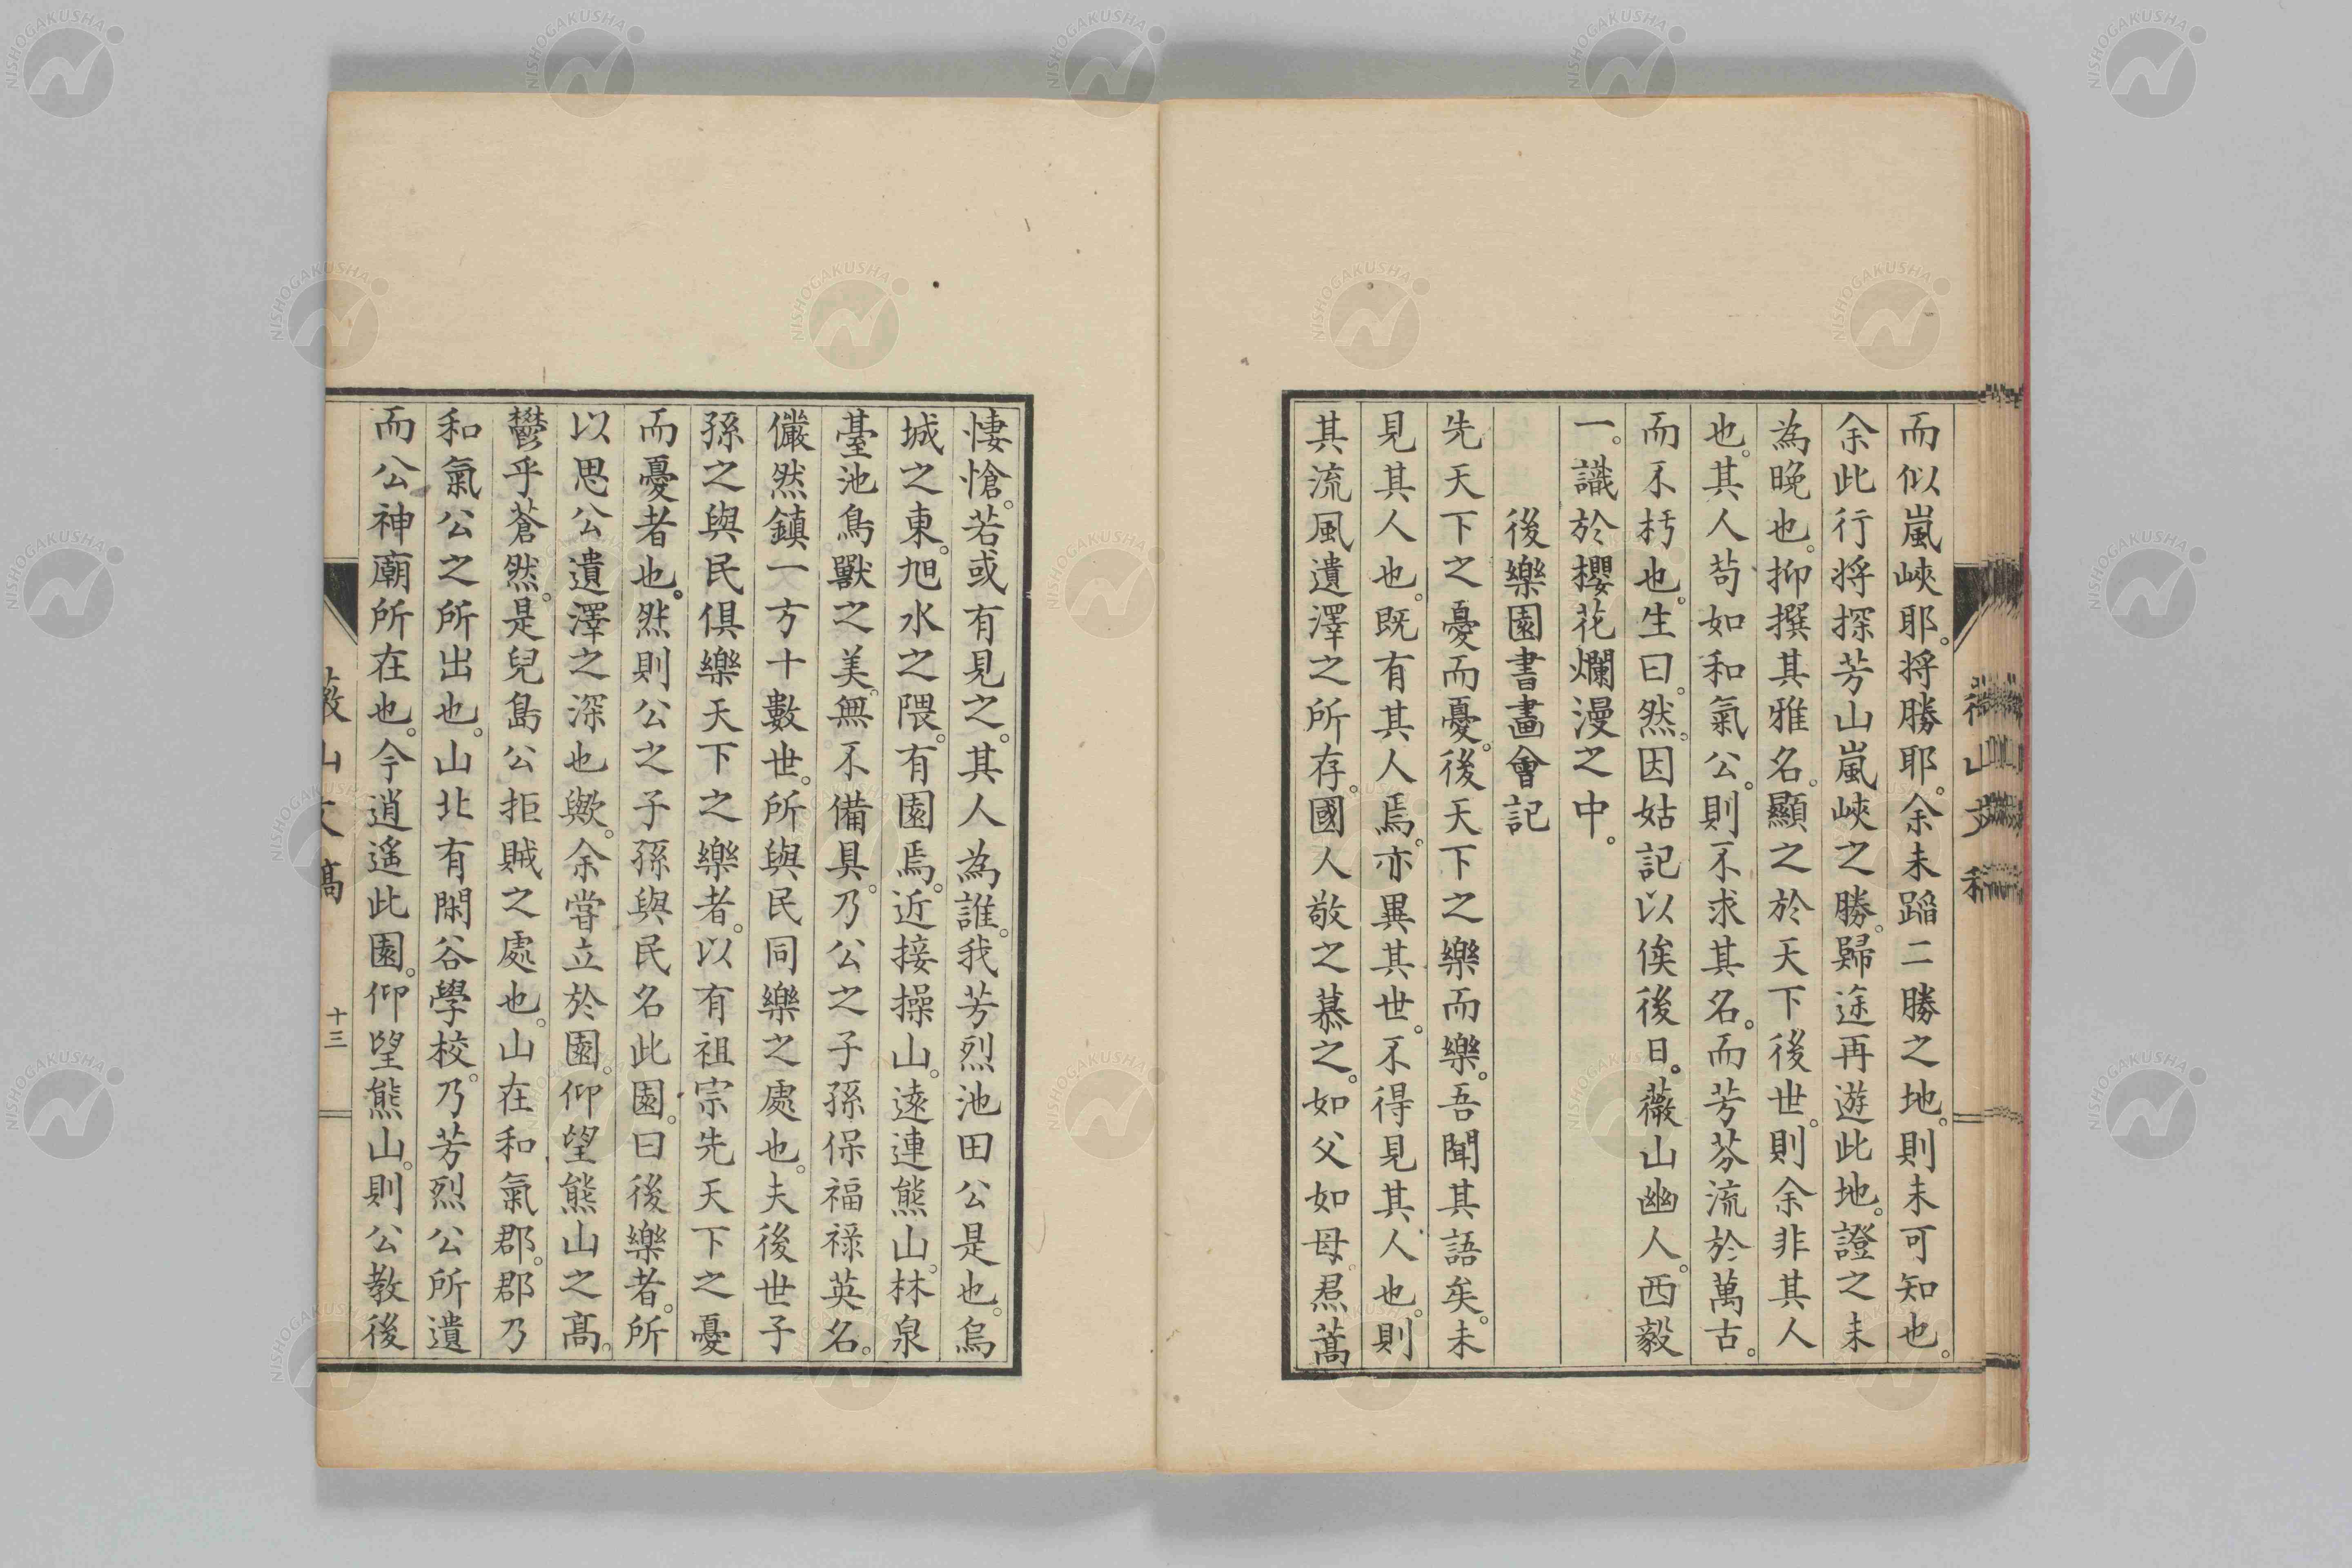 而似嵐峽耶。将勝耶。余未蹈二勝之地。則未可知也。
余此行将探芳山嵐峽之勝。歸途再遊此地。證之未
為晚也。抑撰其雅名。顯之於天下後世。則余非其人
也。其人苟如和氣公。則不求其名。而芳芬流於萬古。
而不朽也。生曰。然。因姑記以俟後日。薇山幽人。西毅
一。識於櫻花爛漫之中。
後樂園書畫會記
先天下之憂而憂。後天下之樂而樂。吾聞其語矣。未
見其人也。既有其人焉。亦異其世。不得見其人也。則
其流風遺澤之所存。國人敬之慕之。如父如母。焄蒿
悽愴。若或有見之。其人為誰。我芳烈池田公是也。烏
城之東。旭水之隈。有園焉。近接操山。遠連熊山。林泉
臺池鳥獸之美。無不備具。乃公之子孫保福祿英名。
儼然鎮一方十數世。所與民同樂之處也。夫後世子
孫之與民俱樂天下之樂者。以有祖宗先天下之憂
而憂者也。然則公之子孫與民名此園。曰後樂者。所
以思公遺澤之深也歟。余甞立於園。仰望熊山之髙。
鬱乎蒼然。是兒島公拒賊之處也。山在和氣郡。郡乃
和氣公之所出也。山北有閑谷學校。乃芳烈公所遺
而公神廟所在也。今逍遙此園。仰望熊山。則公教後
薇山文稿
十三